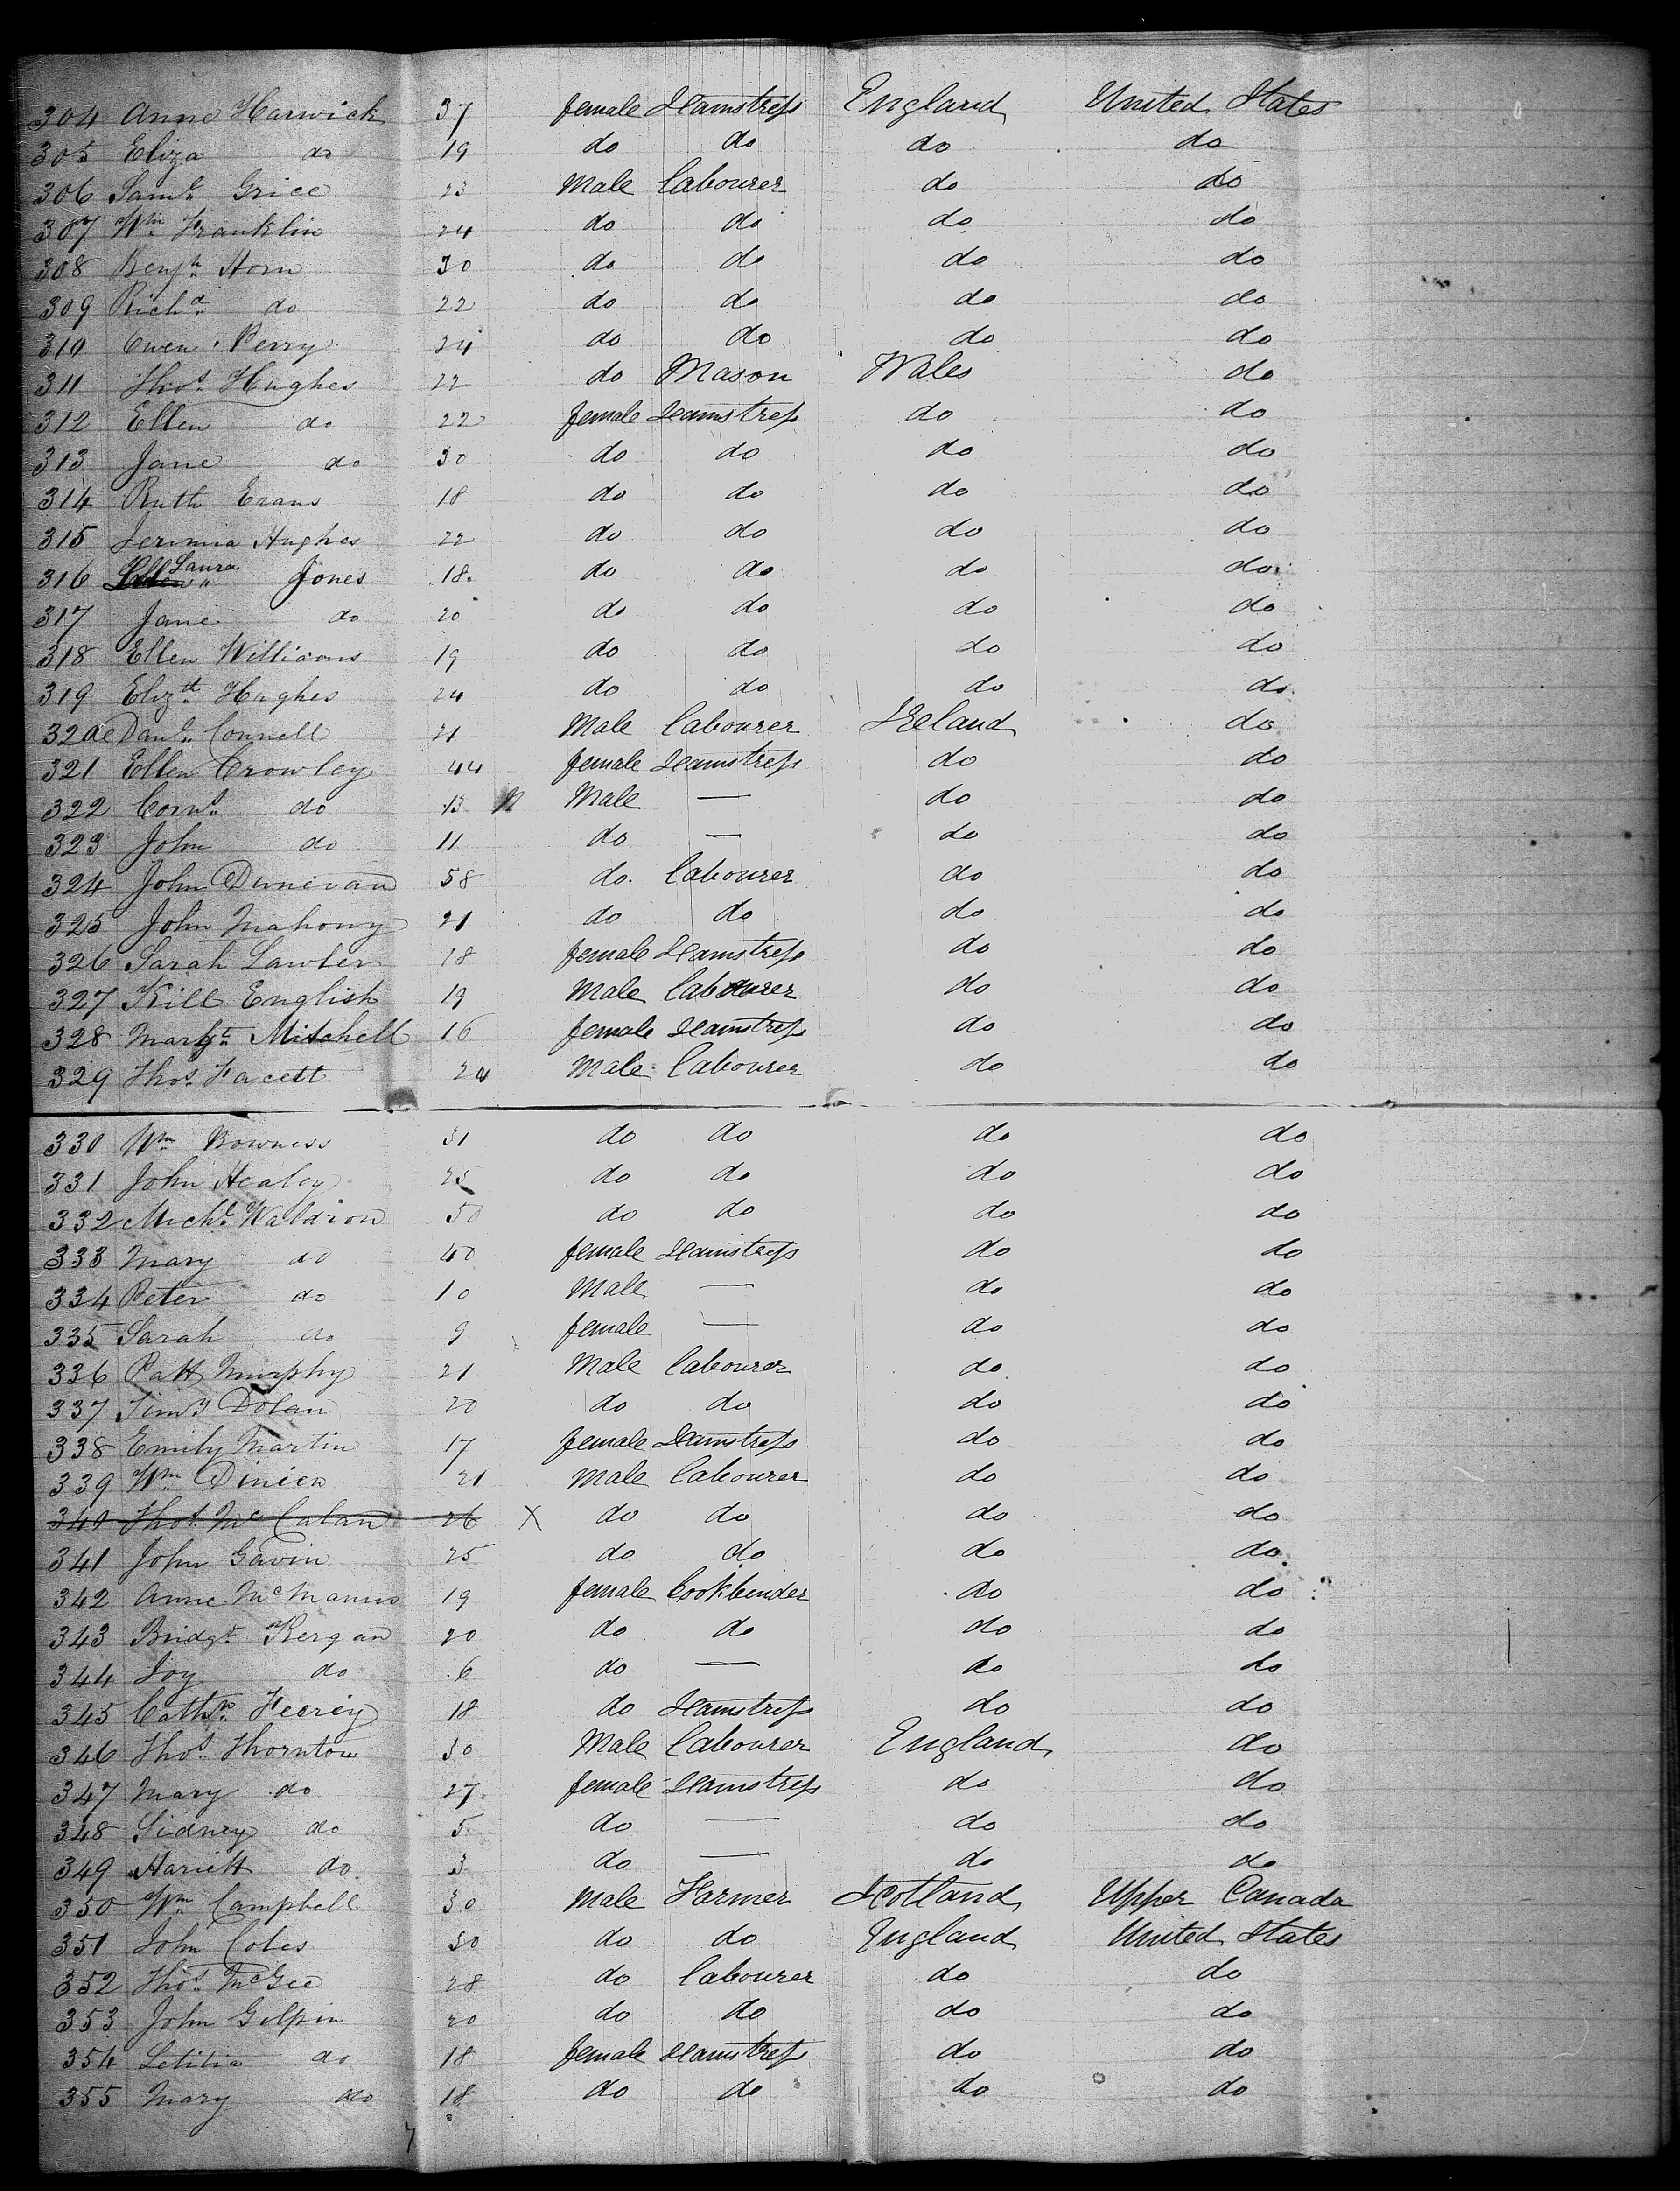 304 Anne Harwick 37 female Seamstress England United States
305 Eliza do 19 do do do do
306 Saml. Grice 23 Male Labourer do do
307 Wm Franklin 24 do do do do
308 Benjn. Horn 30 do do do do
309 Richd. do 22 do do do do
310 Owen Perry 24 do do do do
311 Thos. Hughes 22 do Mason Wales do
312 Ellen do 22 female Seamstress do do
313 Jane do 30 do do do do
314 Ruth Evans 18 do do do do
315 Jerimia Hughes 22 do do do do
316 Laura Jones 18 do do do do
317 Jane do 20 do do do do
318 Ellen Williams 19 do do do do
319 Elizth Hughes 24 do do do do
320 Danl. Connell 21 Male Labourer Ireland do
321 Ellen Crowley 44 female Seamstress do do
322 Corns. do 13 Male — do do
323 John do 11 do — do do
324 John Dunevan 58 do Labourer do do
325 John Mahony 21 do do do do
326 Sarah Lawler 18 female Seamstress do do
327 Kill English 19 Male Labourer do do
328 Margt. Mitchell 16 female Seamstress do do
329 Thos. Facett 24 Male Labourer do do
330 Wm Bowness 31 do do do do
331 John Healey 25 do do do do
332 Michl. Waldron 50 do do do do
333 Mary do 40 female Seamstress do do
334 Peter do 10 Male — do do
335 Sarah do 9 female — do do
336 Patt Murphy 21 Male Labourer do do
337 Timy Dolan 20 do do do do
338 Emily Martin 17 female Seamstress do do
339 Wm 21 Male Labourer do do
340 Thos. Mc Calan 26 X do do do do
341 John Gavin 25 do do do do
342 Anne McManus 19 female Bookbinder do do
343 Bridgt. Kergan 20 do do do do
344 Joy do 6 do — do do
345 Cathn. 18 do Seamstress do do
346 Thos. Thornton 30 Male Labourer England do
347 Mary do 27 female Seamstress do do
348 Sidney do 5 do — do do
349 Hariett do 3 do — do do
350 Wm Campbell 30 Male Farmer Scotland Upper Canada
351 John Coles 30 do do England United States
352 Thos. McGee 28 do Labourer do do
353 John Gilpin 20 do do do do
354 Letitia do 18 female Seamstress do do
355 Mary do 18 do do do do